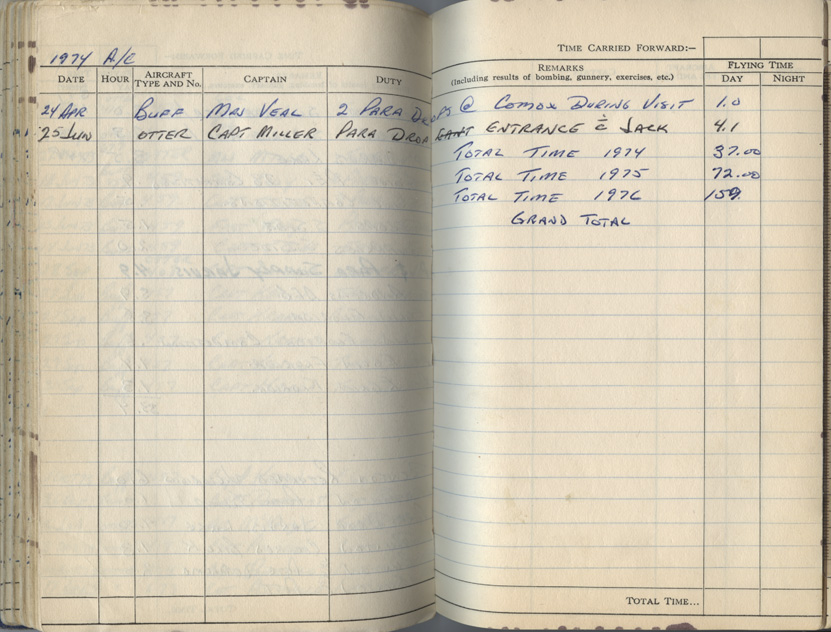 1974 A/C
TIME CARRIED FORWARD:–
DATE HOUR AIRCRAFT TYPE AND NO. CAPTAIN DUTY REMARKS (including results of bombing, gunnery, exercises, etc.) FLYING TIME DAY NIGHT
24 APR BUFF VEAL 2 PARA DROPS @ COMOX DURING VISIT 1.0
25 JUN OTTER CAPT MILLER PARA DROP ENTRANCE C̄ JACK 4.1
TOTAL TIME 1974 37.00
TOTAL TIME 1975 72.00
TOTAL TIME 1976 159.
GRAND TOTAL
TOTAL TIME...